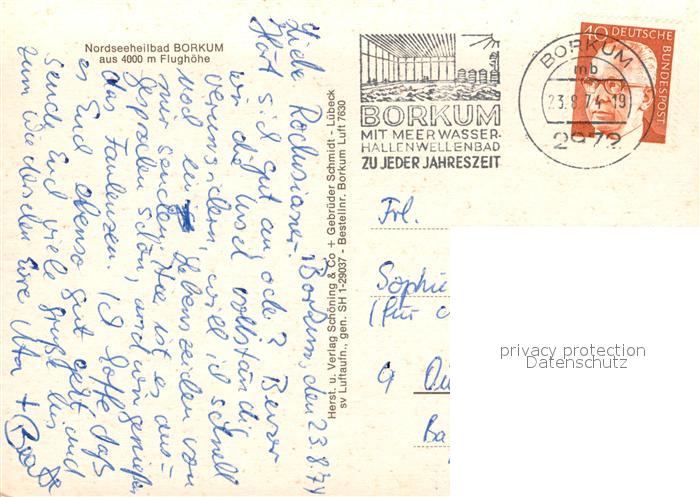 Nordseeheilbad BORKUM
aus 4000 m Flughöhe
Borkum, den 23.8.74
Liebe
Hört sich gut an, oder? Bevor
wir die Insel vollständig
verunsichern, will ich schnell
noch ein Lebenszeichen von
mir senden. Hier ist es aus-
gesprochen schön, und wir genießen
das Faulenzen. Ich hoffe, daß
es Euch ebenso gut geht und
sende Euch viele Grüße bis
zum Wiedersehen Eure Uta +
Herst. u. Verlag Schöning & Co + Gebrüder Schmidt - Lübeck
sv Luftaufn., gen. SH 1-29037 - Bestellnr. Borkum Luft 7630
BORKUM
MIT MEERWASSER-
HALLENWELLENBAD
ZU JEDER JAHRESZEIT
BORKUM
mb
23.8.74-19
2972
40 DEUTSCHE
BUNDESPOST
Frl.
Sophie
(für
Ba
privacy protection
Datenschutz